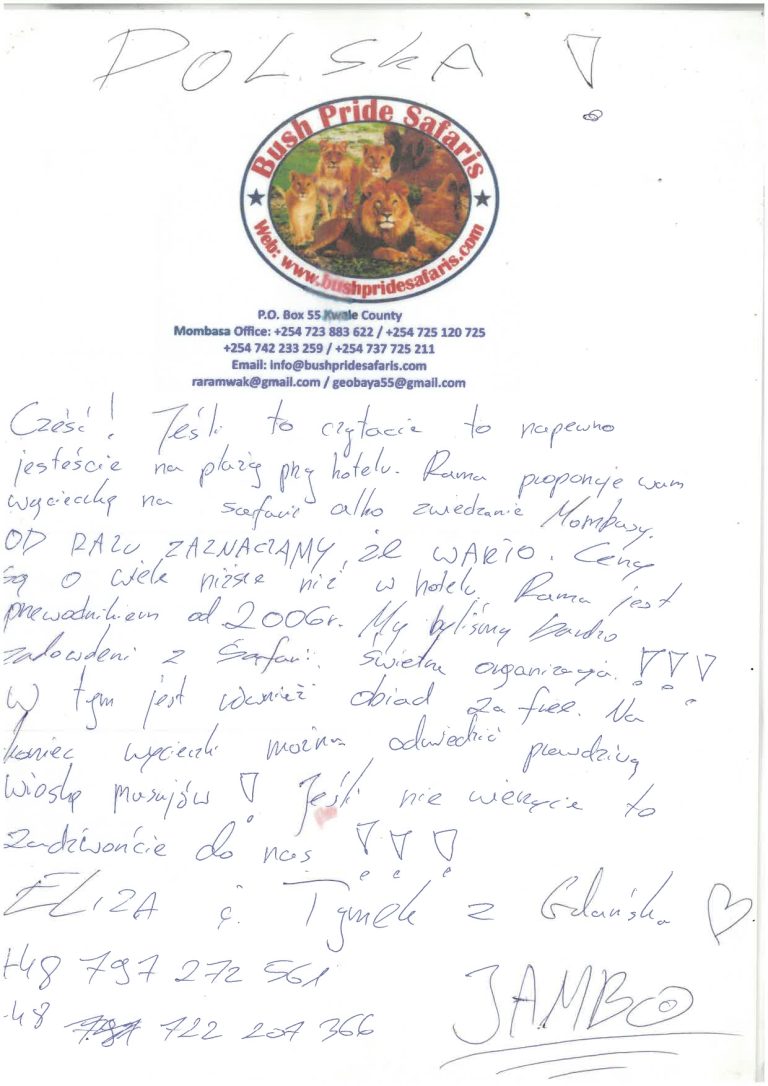 POLSKA !
Bush Pride Safaris
Web: www.bushpridesafaris.com
P.O. Box 55 Kwale County
Mombasa Office: +254 723 883 622 / +254 725 120 725
+254 742 233 259 / +254 737 725 211
Email: info@bushpridesafaris.com
raramwak@gmail.com / geobaya55@gmail.com
Cześć! Jeśli to czytacie to napewno
jesteście na plażą przy hotelu. Rama proponuje wam
wycieczkę na safari albo zwiedzanie Mombasy.
OD RAZU ZAZNACZAMY, że WARTO. Ceny
są o wiele niższe niż w hotelu. Rama jest
przewodnikiem od 2006r. My byliśmy bardzo
zadowoleni z Safari. świetna organizacja. !!!
W tym jest również obiad za free. Na
koniec wycieczki można odwiedzić prawdziwą
wioskę masajów ! Jeśli nie wierzycie to
zadzwońcie do nas !!!
ELIZA i Tymek z Gdańska
+48 797 272 561
+48 722 207 366
JAMBO